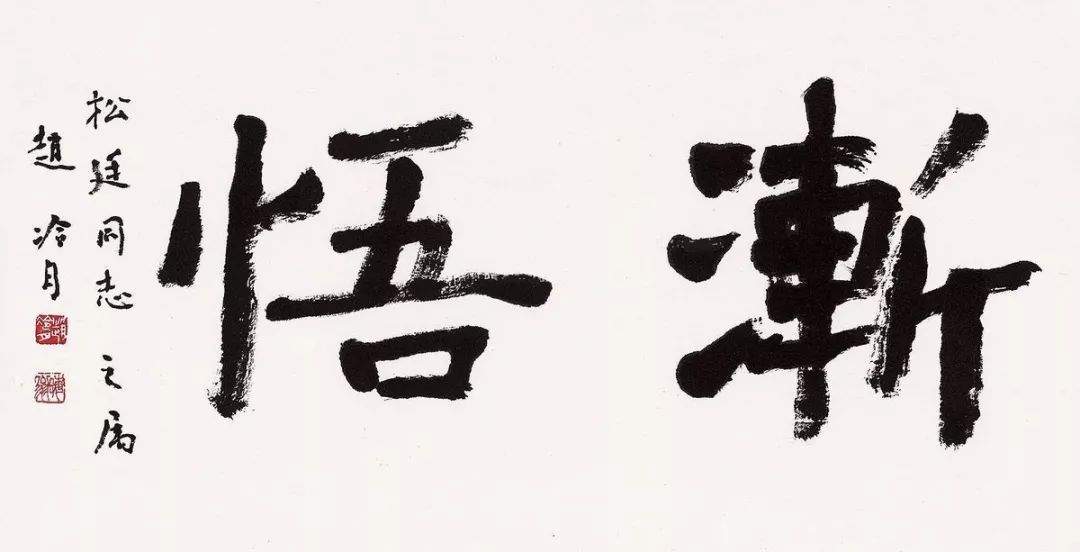 漸悟
松廷同志之属
趙冷月